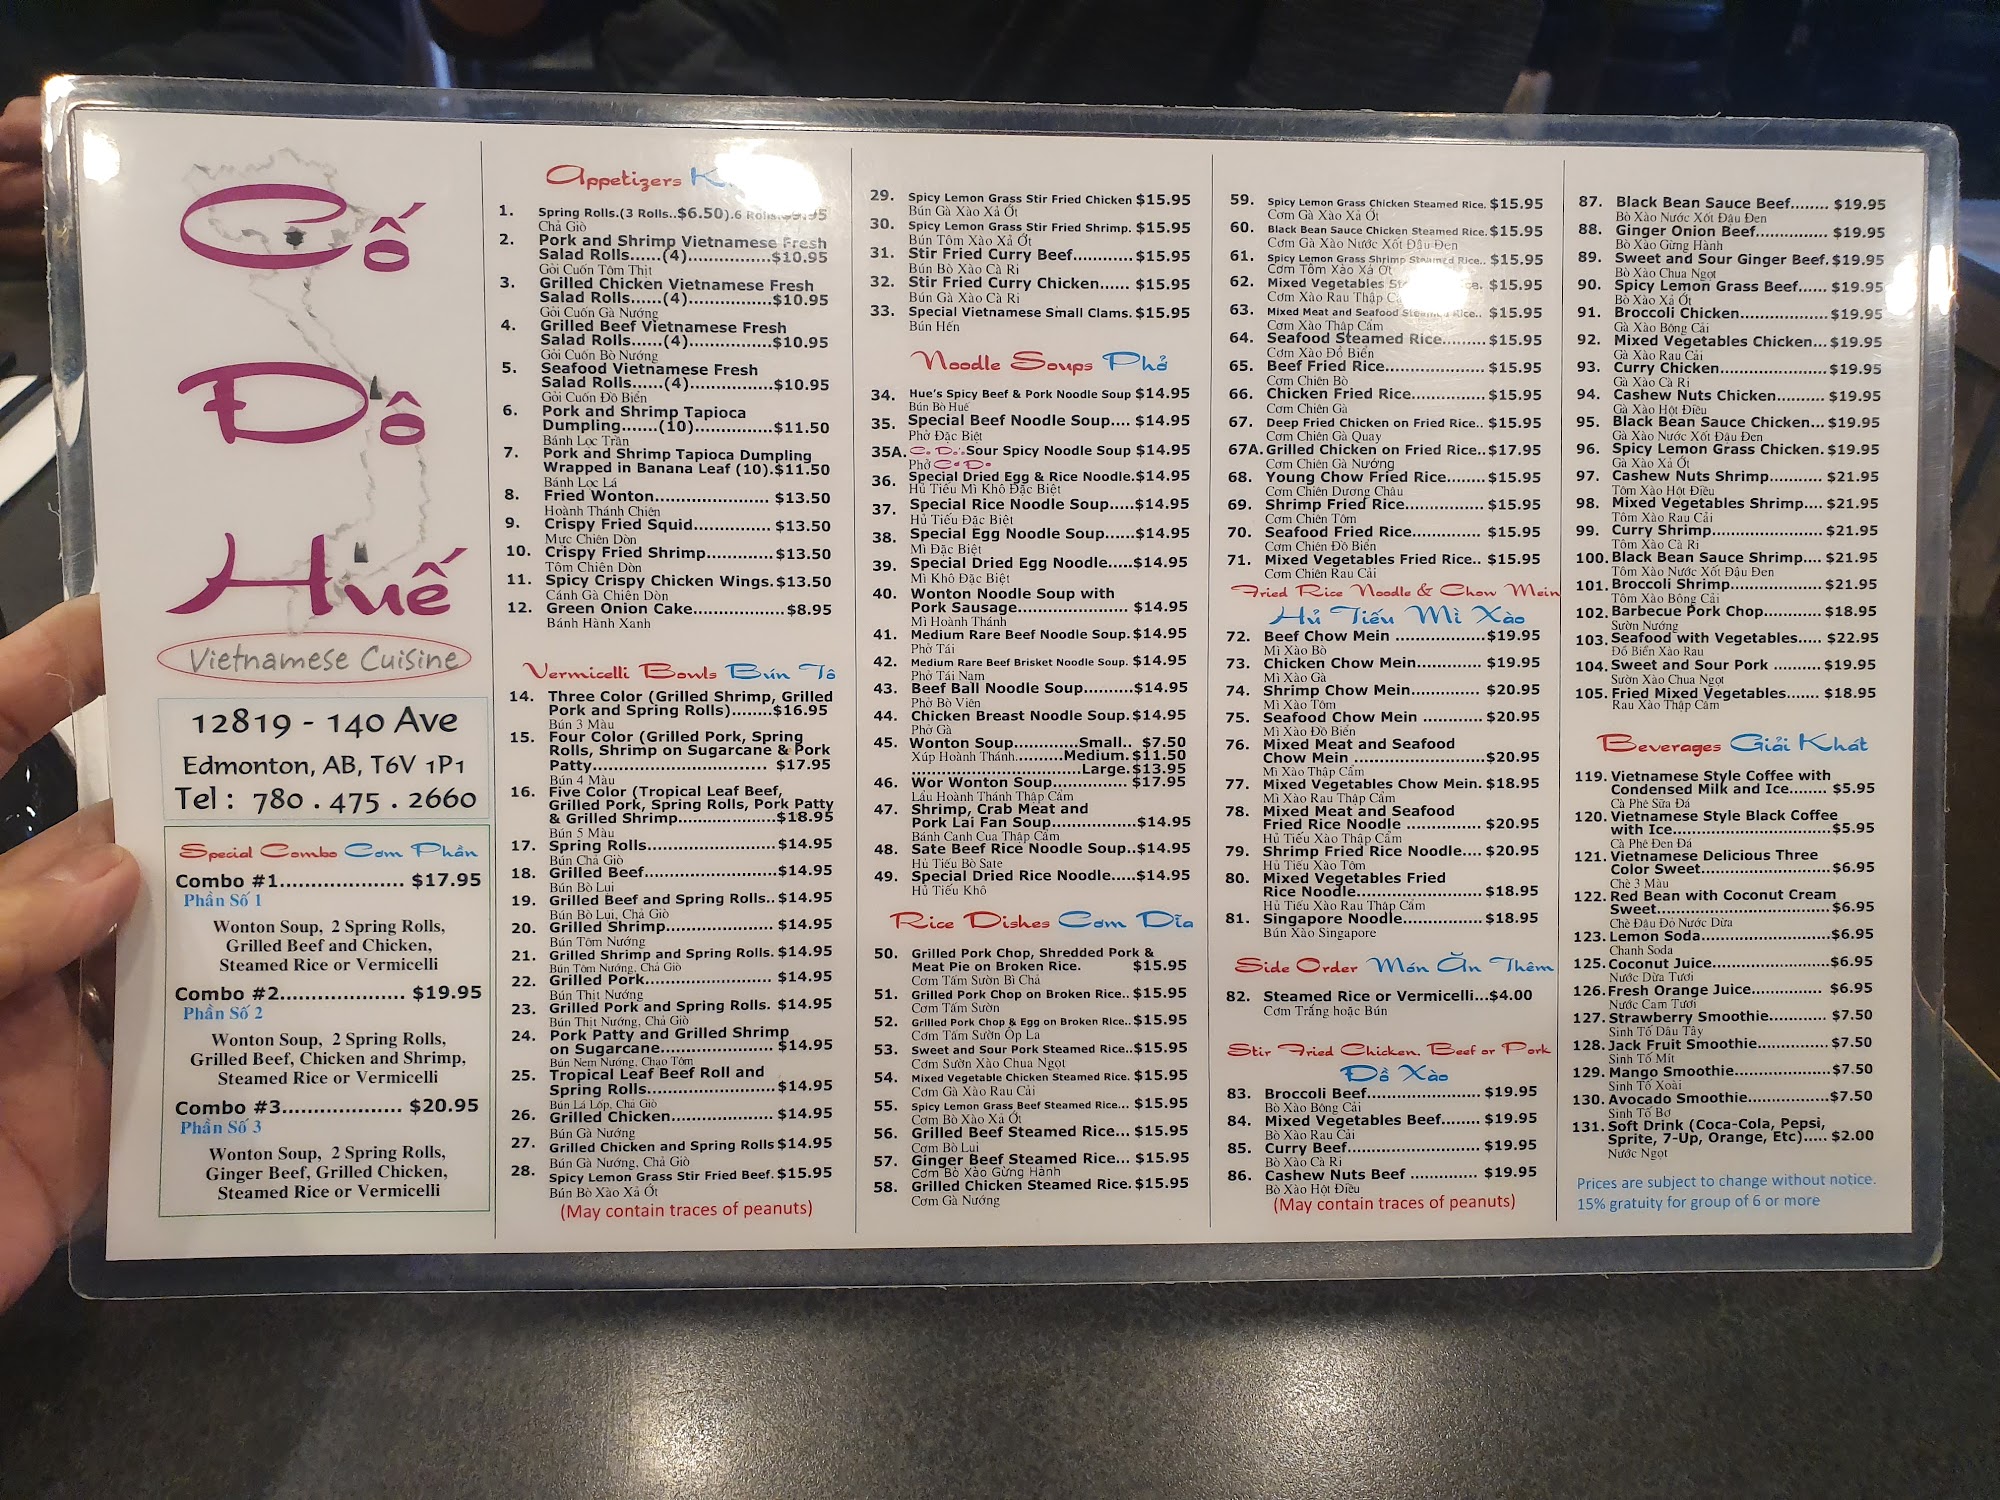 Cố
Đô
Huế
Vietnamese Cuisine
12819 - 140 Ave
Edmonton, AB, T6V 1P1
Tel : 780 . 475 . 2660
Special Combo Cơm Phần
Combo #1.................... $17.95
Phần Số 1
Wonton Soup, 2 Spring Rolls,
Grilled Beef and Chicken,
Steamed Rice or Vermicelli
Combo #2.................... $19.95
Phần Số 2
Wonton Soup, 2 Spring Rolls,
Grilled Beef, Chicken and Shrimp,
Steamed Rice or Vermicelli
Combo #3................... $20.95
Phần Số 3
Wonton Soup, 2 Spring Rolls,
Ginger Beef, Grilled Chicken,
Steamed Rice or Vermicelli
Appetizers
1. Spring Rolls.(3 Rolls..$6.50).6 Rolls.$9.95
Chả Giò
2. Pork and Shrimp Vietnamese Fresh
Salad Rolls......(4)...............$10.95
Gỏi Cuốn Tôm Thịt
3. Grilled Chicken Vietnamese Fresh
Salad Rolls......(4)...............$10.95
Gỏi Cuốn Gà Nướng
4. Grilled Beef Vietnamese Fresh
Salad Rolls......(4)...............$10.95
Gỏi Cuốn Bò Nướng
5. Seafood Vietnamese Fresh
Salad Rolls......(4)...............$10.95
Gỏi Cuốn Đồ Biển
6. Pork and Shrimp Tapioca
Dumpling.......(10)..............$11.50
Bánh Lọc Trần
7. Pork and Shrimp Tapioca Dumpling
Wrapped in Banana Leaf (10).$11.50
Bánh Lọc Lá
8. Fried Wonton...................... $13.50
Hoành Thánh Chiên
9. Crispy Fried Squid............... $13.50
Mực Chiên Dòn
10. Crispy Fried Shrimp............. $13.50
Tôm Chiên Dòn
11. Spicy Crispy Chicken Wings. $13.50
Cánh Gà Chiên Dòn
12. Green Onion Cake................. $8.95
Bánh Hành Xanh
Vermicelli Bowls Bún Tô
14. Three Color (Grilled Shrimp, Grilled
Pork and Spring Rolls)........$16.95
Bún 3 Màu
15. Four Color (Grilled Pork, Spring
Rolls, Shrimp on Sugarcane & Pork
Patty................................. $17.95
Bún 4 Màu
16. Five Color (Tropical Leaf Beef,
Grilled Pork, Spring Rolls, Pork Patty
& Grilled Shrimp..................$18.95
Bún 5 Màu
17. Spring Rolls........................ $14.95
Bún Chả Giò
18. Grilled Beef........................ $14.95
Bún Bò Lui
19. Grilled Beef and Spring Rolls.. $14.95
Bún Bò Lui, Chả Giò
20. Grilled Shrimp..................... $14.95
Bún Tôm Nướng
21. Grilled Shrimp and Spring Rolls. $14.95
Bún Tôm Nướng, Chả Giò
22. Grilled Pork........................ $14.95
Bún Thịt Nướng
23. Grilled Pork and Spring Rolls. $14.95
Bún Thịt Nướng, Chả Giò
24. Pork Patty and Grilled Shrimp
on Sugarcane...................... $14.95
Bún Nem Nướng, Chạo Tôm
25. Tropical Leaf Beef Roll and
Spring Rolls........................$14.95
Bún Lá Lốp, Chả Giò
26. Grilled Chicken....................$14.95
Bún Gà Nướng
27. Grilled Chicken and Spring Rolls $14.95
Bún Gà Nướng, Chả Giò
28. Spicy Lemon Grass Stir Fried Beef. $15.95
Bún Bò Xào Xả Ớt
(May contain traces of peanuts)
29. Spicy Lemon Grass Stir Fried Chicken $15.95
Bún Gà Xào Xả Ớt
30. Spicy Lemon Grass Stir Fried Shrimp. $15.95
Bún Tôm Xào Xả Ớt
31. Stir Fried Curry Beef............ $15.95
Bún Bò Xào Cà Ri
32. Stir Fried Curry Chicken...... $15.95
Bún Gà Xào Cà Ri
33. Special Vietnamese Small Clams. $15.95
Bún Hến
Noodle Soups Phở
34. Hue's Spicy Beef & Pork Noodle Soup $14.95
Bún Bò Huế
35. Special Beef Noodle Soup.... $14.95
Phở Đặc Biệt
35A. Co Do's Sour Spicy Noodle Soup $14.95
Phở Co Do
36. Special Dried Egg & Rice Noodle. $14.95
Hủ Tiếu Mì Khô Đặc Biệt
37. Special Rice Noodle Soup.....$14.95
Hủ Tiếu Đặc Biệt
38. Special Egg Noodle Soup......$14.95
Mì Đặc Biệt
39. Special Dried Egg Noodle.....$14.95
Mì Khô Đặc Biệt
40. Wonton Noodle Soup with
Pork Sausage.................... $14.95
Mì Hoành Thánh
41. Medium Rare Beef Noodle Soup. $14.95
Phở Tái
42. Medium Rare Beef Brisket Noodle Soup. $14.95
Phở Tái Nam
43. Beef Ball Noodle Soup..........$14.95
Phở Bò Viên
44. Chicken Breast Noodle Soup. $14.95
Phở Gà
45. Wonton Soup............Small.. $7.50
Xúp Hoành Thánh.........Medium. $11.50
................................Large. $13.95
46. Wor Wonton Soup.............. $17.95
Lẩu Hoành Thánh Thập Cẩm
47. Shrimp, Crab Meat and
Pork Lai Fan Soup................$14.95
Bánh Canh Cua Thập Cẩm
48. Sate Beef Rice Noodle Soup..$14.95
Hủ Tiếu Bò Sate
49. Special Dried Rice Noodle.....$14.95
Hủ Tiếu Khô
Rice Dishes Cơm Dĩa
50. Grilled Pork Chop, Shredded Pork &
Meat Pie on Broken Rice. $15.95
Cơm Tấm Sườn Bì Chả
51. Grilled Pork Chop on Broken Rice.. $15.95
Cơm Tấm Sườn
52. Grilled Pork Chop & Egg on Broken Rice.. $15.95
Cơm Tấm Sườn Ốp La
53. Sweet and Sour Pork Steamed Rice..$15.95
Cơm Sườn Xào Chua Ngọt
54. Mixed Vegetable Chicken Steamed Rice. $15.95
Cơm Gà Xào Rau Cải
55. Spicy Lemon Grass Beef Steamed Rice... $15.95
Cơm Bò Xào Xả Ớt
56. Grilled Beef Steamed Rice... $15.95
Cơm Bò Lui
57. Ginger Beef Steamed Rice... $15.95
Cơm Bò Xào Gừng Hành
58. Grilled Chicken Steamed Rice. $15.95
Cơm Gà Nướng
59. Spicy Lemon Grass Chicken Steamed Rice. $15.95
Cơm Gà Xào Xả Ớt
60. Black Bean Sauce Chicken Steamed Rice. $15.95
Cơm Gà Xào Nước Xốt Đậu Đen
61. Spicy Lemon Grass Shrimp Steamed Rice.. $15.95
Cơm Tôm Xào Xả Ớt
62. Mixed Vegetables Steamed Rice. $15.95
Cơm Xào Rau Thập
63. Mixed Meat and Seafood Steamed Rice.. $15.95
Cơm Xào Thập Cẩm
64. Seafood Steamed Rice........ $15.95
Cơm Xào Đồ Biển
65. Beef Fried Rice.................. $15.95
Cơm Chiên Bò
66. Chicken Fried Rice............. $15.95
Cơm Chiên Gà
67. Deep Fried Chicken on Fried Rice.. $15.95
Cơm Chiên Gà Quay
67A. Grilled Chicken on Fried Rice.. $17.95
Cơm Chiên Gà Nướng
68. Young Chow Fried Rice....... $15.95
Cơm Chiên Dương Châu
69. Shrimp Fried Rice.............. $15.95
Cơm Chiên Tôm
70. Seafood Fried Rice............. $15.95
Cơm Chiên Đồ Biển
71. Mixed Vegetables Fried Rice.. $15.95
Cơm Chiên Rau Cải
Fried Rice Noodle & Chow Mein
Hủ Tiếu Mì Xào
72. Beef Chow Mein ................$19.95
Mì Xào Bò
73. Chicken Chow Mein............ $19.95
Mì Xào Gà
74. Shrimp Chow Mein............. $20.95
Mì Xào Tôm
75. Seafood Chow Mein ........... $20.95
Mì Xào Đồ Biển
76. Mixed Meat and Seafood
Chow Mein .......................$20.95
Mì Xào Thập Cẩm
77. Mixed Vegetables Chow Mein. $18.95
Mì Xào Rau Thập Cẩm
78. Mixed Meat and Seafood
Fried Rice Noodle .............. $20.95
Hủ Tiếu Xào Thập Cẩm
79. Shrimp Fried Rice Noodle.... $20.95
Hủ Tiếu Xào Tôm
80. Mixed Vegetables Fried
Rice Noodle...................... $18.95
Hủ Tiếu Xào Rau Thập Cẩm
81. Singapore Noodle............... $18.95
Bún Xào Singapore
Side Order Món Ăn Thêm
82. Steamed Rice or Vermicelli...$4.00
Cơm Trắng hoặc Bún
Stir Fried Chicken, Beef or Pork
Đồ Xào
83. Broccoli Beef.................... $19.95
Bò Xào Bông Cải
84. Mixed Vegetables Beef....... $19.95
Bò Xào Rau Cải
85. Curry Beef........................ $19.95
Bò Xào Cà Ri
86. Cashew Nuts Beef ............. $19.95
Bò Xào Hột Điều
(May contain traces of peanuts)
87. Black Bean Sauce Beef........ $19.95
Bò Xào Nước Xốt Đậu Đen
88. Ginger Onion Beef.............. $19.95
Bò Xào Gừng Hành
89. Sweet and Sour Ginger Beef. $19.95
Bò Xào Chua Ngọt
90. Spicy Lemon Grass Beef...... $19.95
Bò Xào Xả Ớt
91. Broccoli Chicken.................$19.95
Gà Xào Bông Cải
92. Mixed Vegetables Chicken... $19.95
Gà Xào Rau Cải
93. Curry Chicken.....................$19.95
Gà Xào Cà Ri
94. Cashew Nuts Chicken..........$19.95
Gà Xào Hột Điều
95. Black Bean Sauce Chicken... $19.95
Gà Xào Nước Xốt Đậu Đen
96. Spicy Lemon Grass Chicken. $19.95
Gà Xào Xả Ớt
97. Cashew Nuts Shrimp.......... $21.95
Tôm Xào Hột Điều
98. Mixed Vegetables Shrimp.... $21.95
Tôm Xào Rau Cải
99. Curry Shrimp.....................$21.95
Tôm Xào Cà Ri
100. Black Bean Sauce Shrimp.... $21.95
Tôm Xào Nước Xốt Đậu Đen
101. Broccoli Shrimp................. $21.95
Tôm Xào Bông Cải
102. Barbecue Pork Chop........... $18.95
Sườn Nướng
103. Seafood with Vegetables..... $22.95
Đồ Biển Xào Rau
104. Sweet and Sour Pork ......... $19.95
Sườn Xào Chua Ngọt
105. Fried Mixed Vegetables....... $18.95
Rau Xào Thập Cẩm
Beverages Giải Khát
119. Vietnamese Style Coffee with
Condensed Milk and Ice....... $5.95
Cà Phê Sữa Đá
120. Vietnamese Style Black Coffee
with Ice.............................$5.95
Cà Phê Đen Đá
121. Vietnamese Delicious Three
Color Sweet....................... $6.95
Chè 3 Màu
122. Red Bean with Coconut Cream
Sweet................................$6.95
Chè Đậu Đỏ Nước Dừa
123. Lemon Soda.......................$6.95
Chanh Soda
125. Coconut Juice.....................$6.95
Nước Dừa Tươi
126. Fresh Orange Juice............. $6.95
Nước Cam Tươi
127. Strawberry Smoothie.......... $7.50
Sinh Tố Dâu Tây
128. Jack Fruit Smoothie............ $7.50
Sinh Tố Mít
129. Mango Smoothie.................$7.50
Sinh Tố Xoài
130. Avocado Smoothie..............$7.50
Sinh Tố Bơ
131. Soft Drink (Coca-Cola, Pepsi,
Sprite, 7-Up, Orange, Etc)..... $2.00
Nước Ngọt
Prices are subject to change without notice.
15% gratuity for group of 6 or more